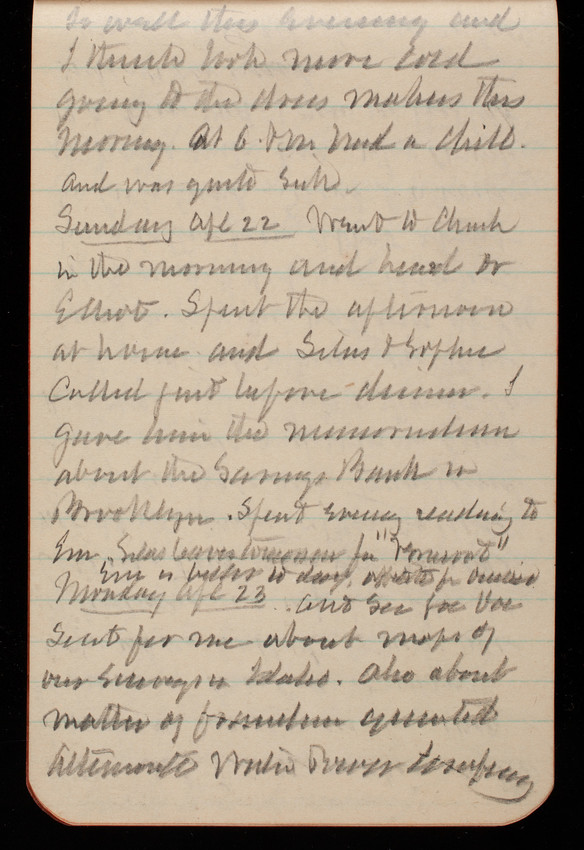 to walk this evening and
I think took more cold
going to the dress makers this
morning. At 6. P m had a chill.
and was quite sick.
Sunday Apl 22 Went to Church
in the morning and heard Dr
Elliot. Spent the afternoon
at home and Silas & Sophie
Called just before dinner. I
gave him the memorandum
about the Savings Bank in
Brooklyn. Spent evening reading to
Em. Silas leaves tomorrow for "
Em is better to day,
Monday Apl 23 and Sec
Sent for me about maps of
our Surveys in Idaho. Also about
matter of
Water Power Company